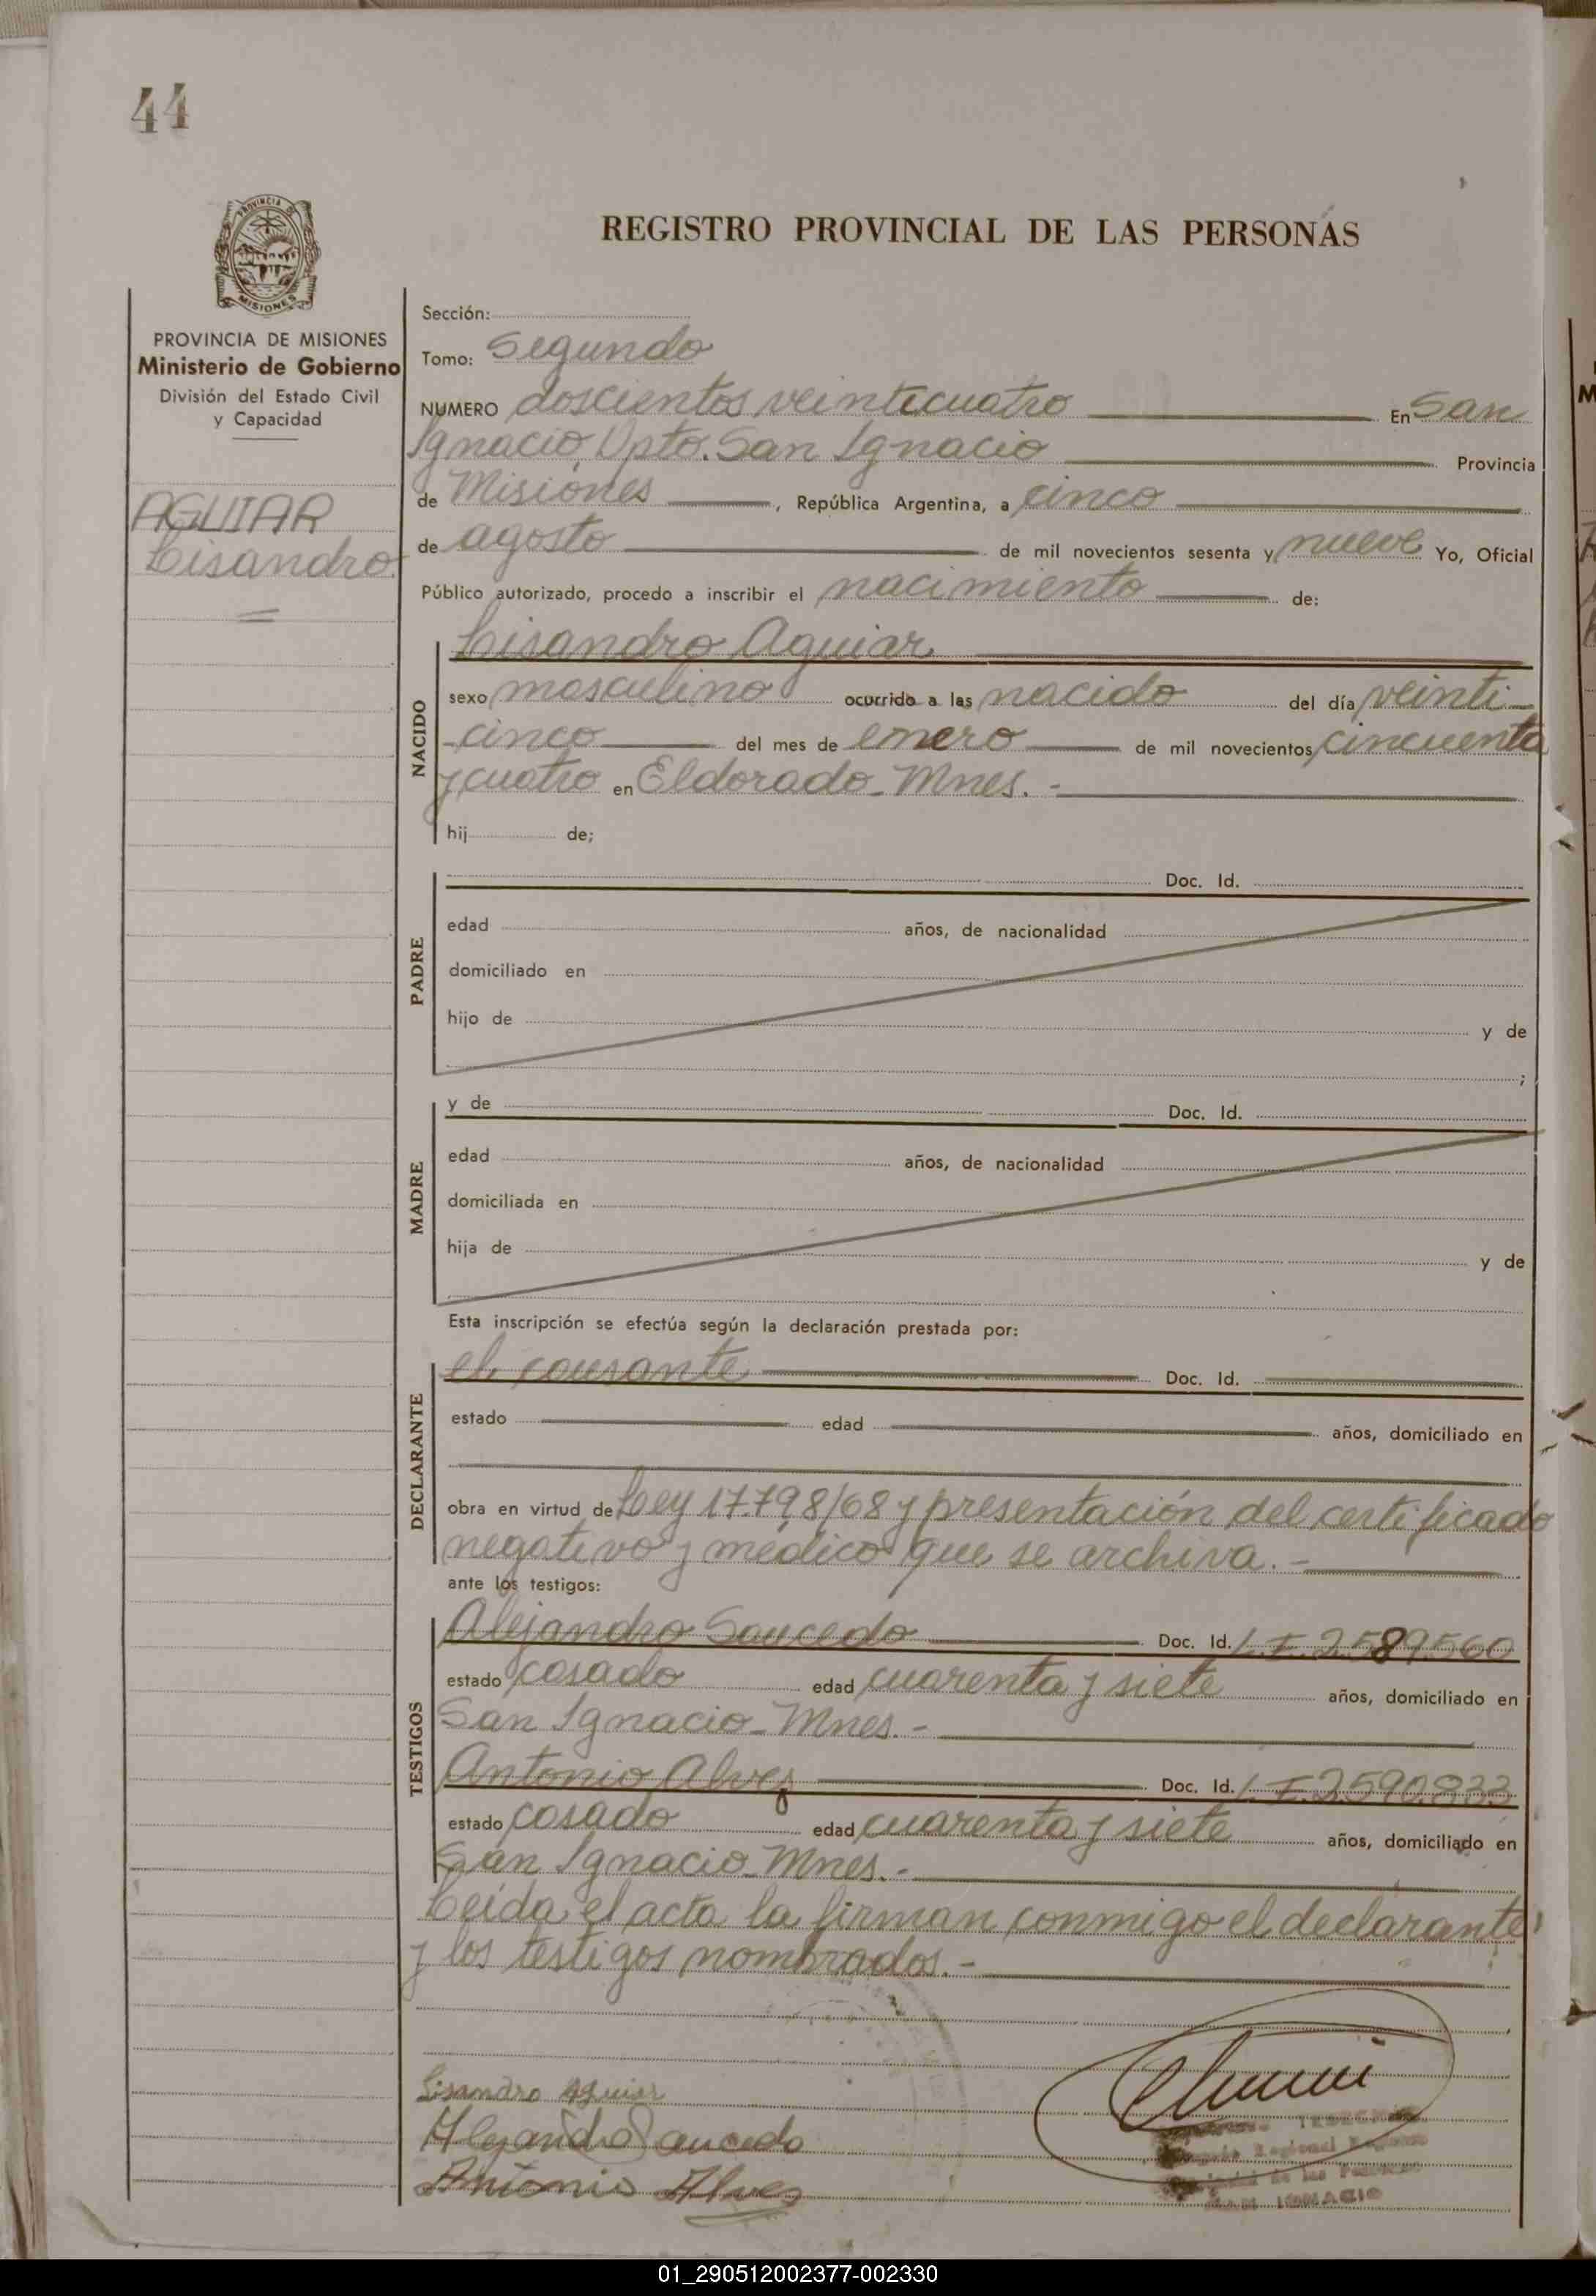 44
REGISTRO PROVINCIAL DE LAS PERSONAS
PROVINCIA DE MISIONES
MISIONES
PROVINCIA DE MISIONES
Ministerio de Gobierno
División del Estado Civil
y Capacidad
AGUIAR
Lisandro
Sección:
Tomo: Segundo
NUMERO doscientos veinticuatro En San
Ignacio, Dpto. San Ignacio Provincia
de Misiones, República Argentina, a cinco
de agosto de mil novecientos sesenta y nueve Yo, Oficial
Público autorizado, procedo a inscribir el nacimiento de:
NACIDO
Lisandro Aguiar
sexo masculino ocurrido a las nacido del día veinti-
cinco del mes de enero de mil novecientos cincuenta
y cuatro en Eldorado - Mnes. -
hij de;
PADRE
Doc. Id.
edad años, de nacionalidad
domiciliado en
hijo de y de
;
MADRE
y de Doc. Id.
edad años, de nacionalidad
domiciliada en
hija de y de
Esta inscripción se efectúa según la declaración prestada por:
DECLARANTE
el causante Doc. Id.
estado edad años, domiciliado en
obra en virtud de Ley 17.798/68 y presentación del certificado
negativo y médico que se archiva. -
ante los testigos:
TESTIGOS
Alejandro Saucedo Doc. Id. L.E. 2.589.560
estado casado edad cuarenta y siete años, domiciliado en
San Ignacio - Mnes. -
Antonio Alvez Doc. Id. L.E. 2.590.833
estado casado edad cuarenta y siete años, domiciliado en
San Ignacio - Mnes. -
Leída el acta la firman conmigo el declarante
y los testigos nombrados. -
Lisandro Aguiar
Alejandro Saucedo
Antonio Alves
Regional
de las Personas
SAN IGNACIO
01_290512002377-002330